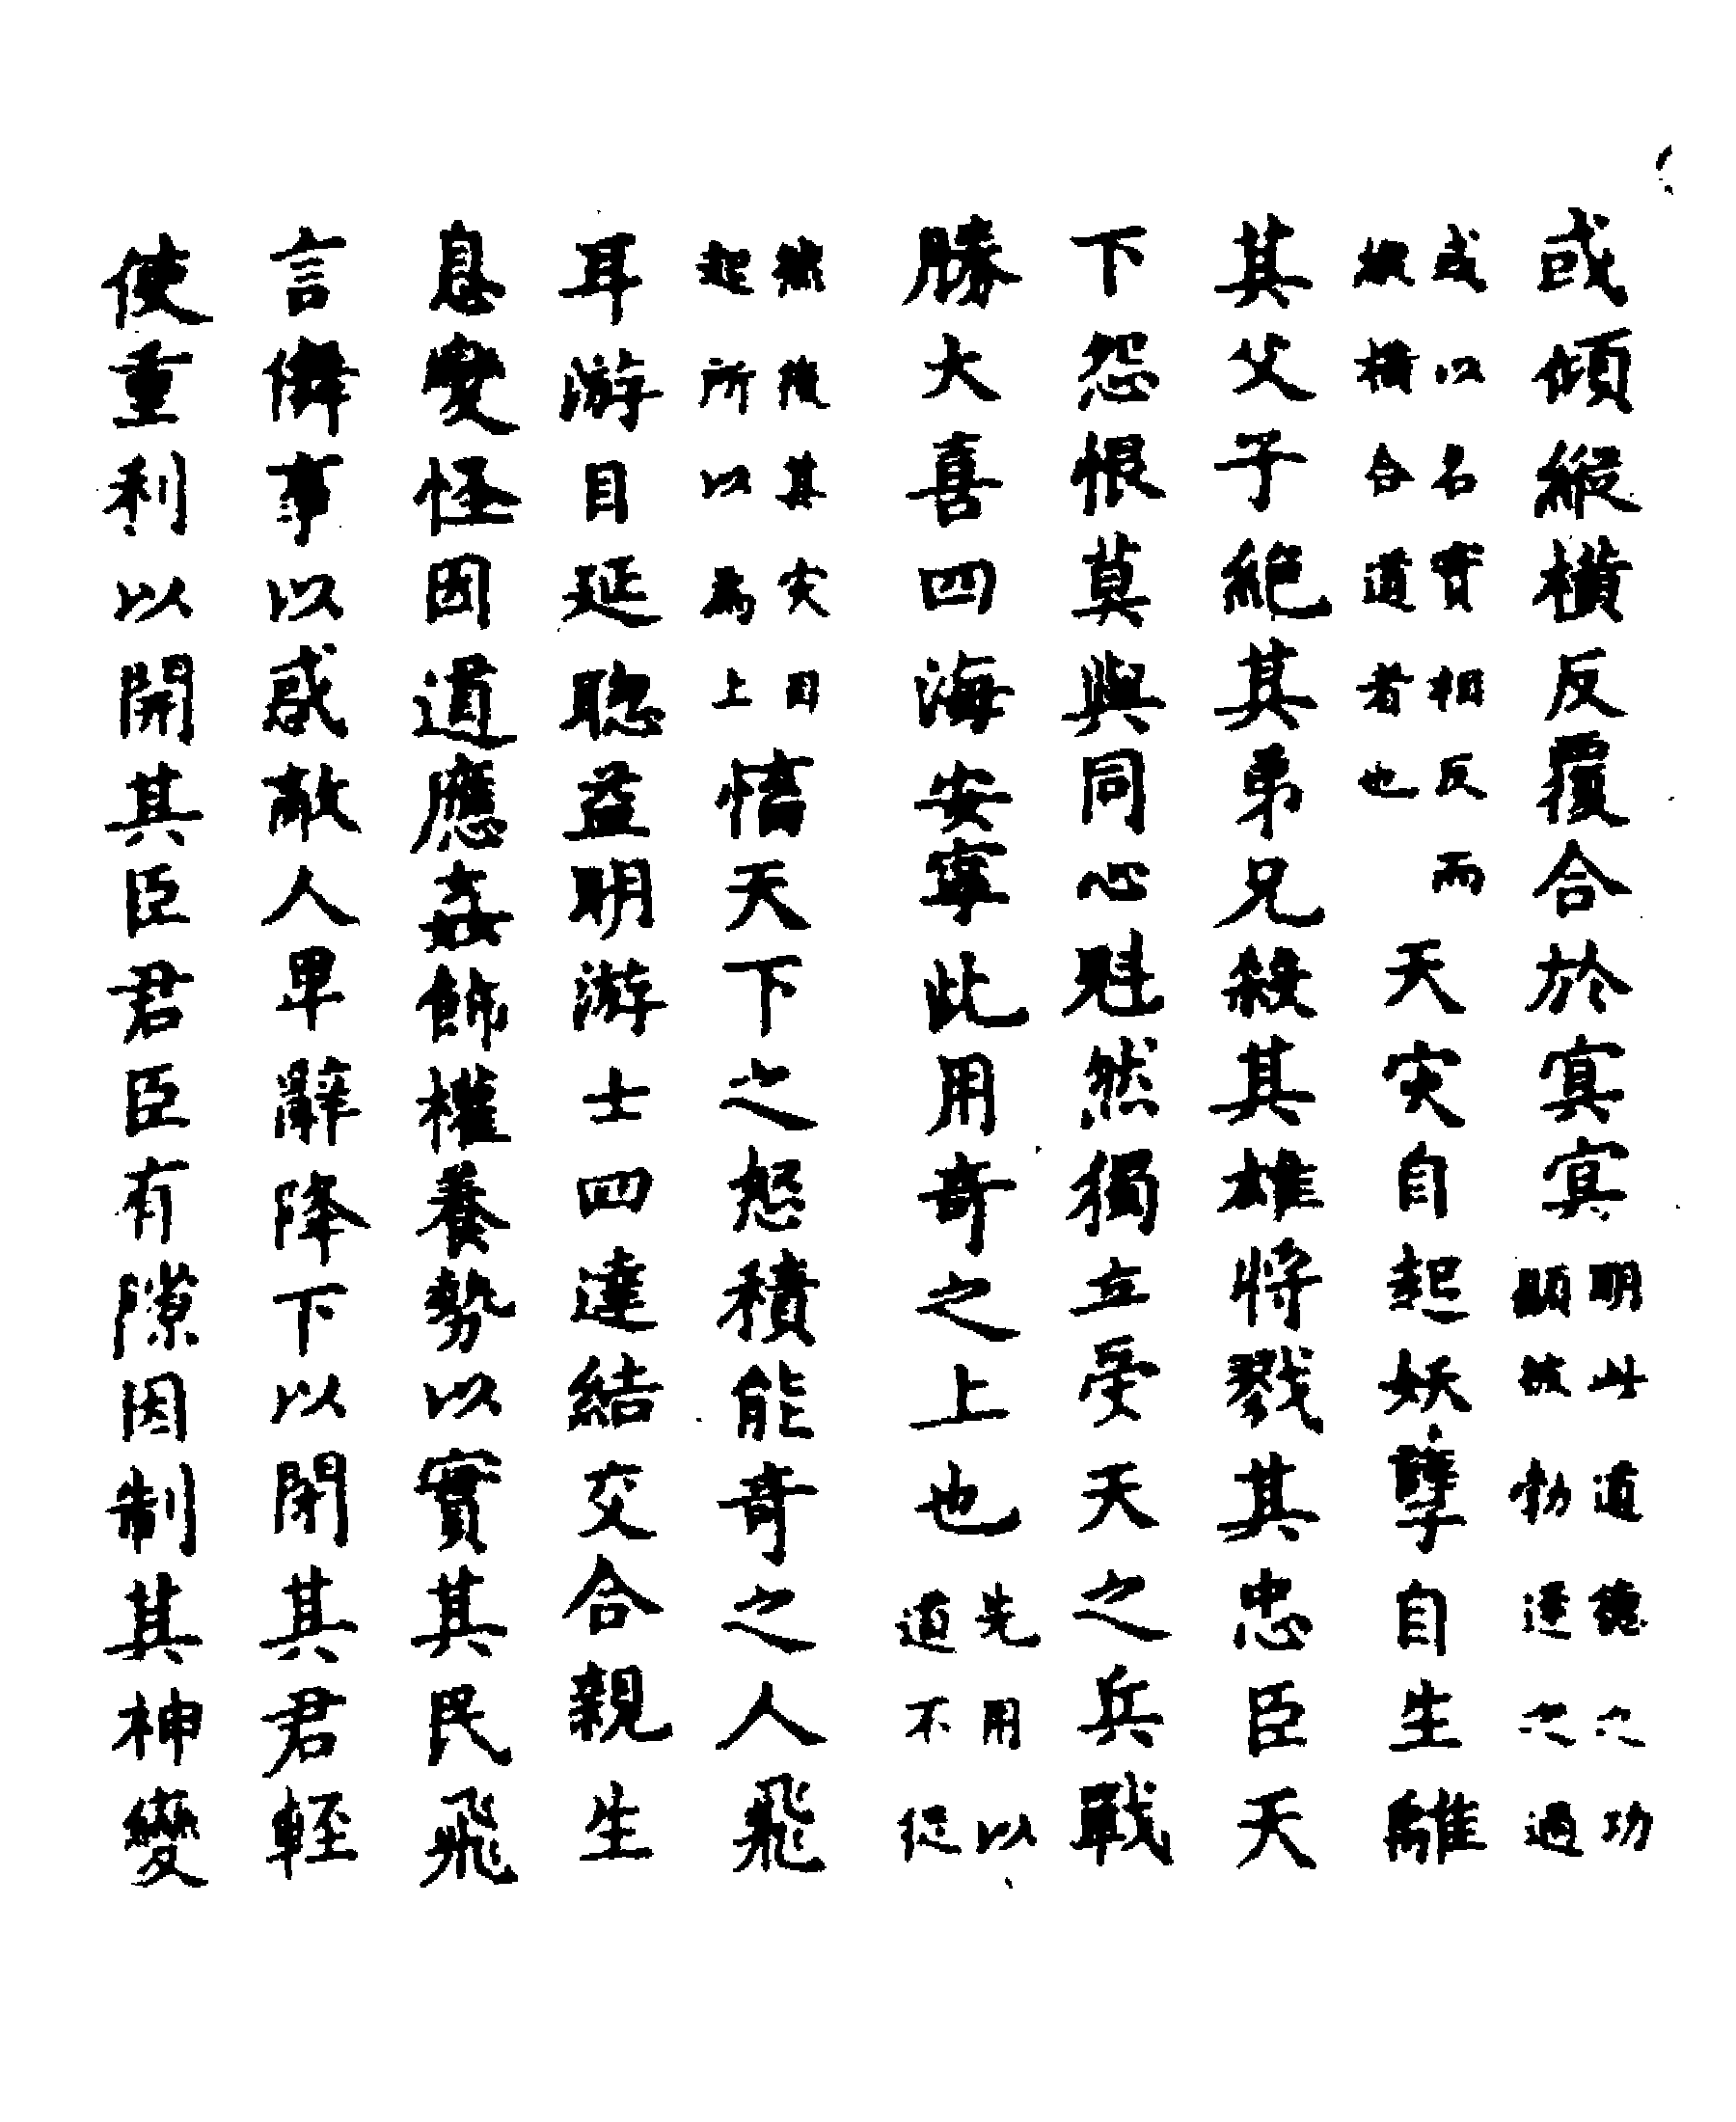 或傾縱橫反覆合於寘寘明此道德之功顯彼勃逆之過
或以名實相反而縱橫合道者也天灾自起妖孽自生離
其父子絕其弟兄殺其雄將戮其忠臣天
下怨恨莫與同心魁然獨立受天之兵戰
勝大喜四海安寧此用奇之上也先用以道不從
然後其灾因起所以為上慉天下之怒積能奇之人飛
耳游目延聰益明游士四達結交合親生
息變怪因道應姦飾權養勢以實其民飛
言僻事以惑敵人卑辭降下以閉其君輕
使重利以開其臣君臣有隙因制其神變